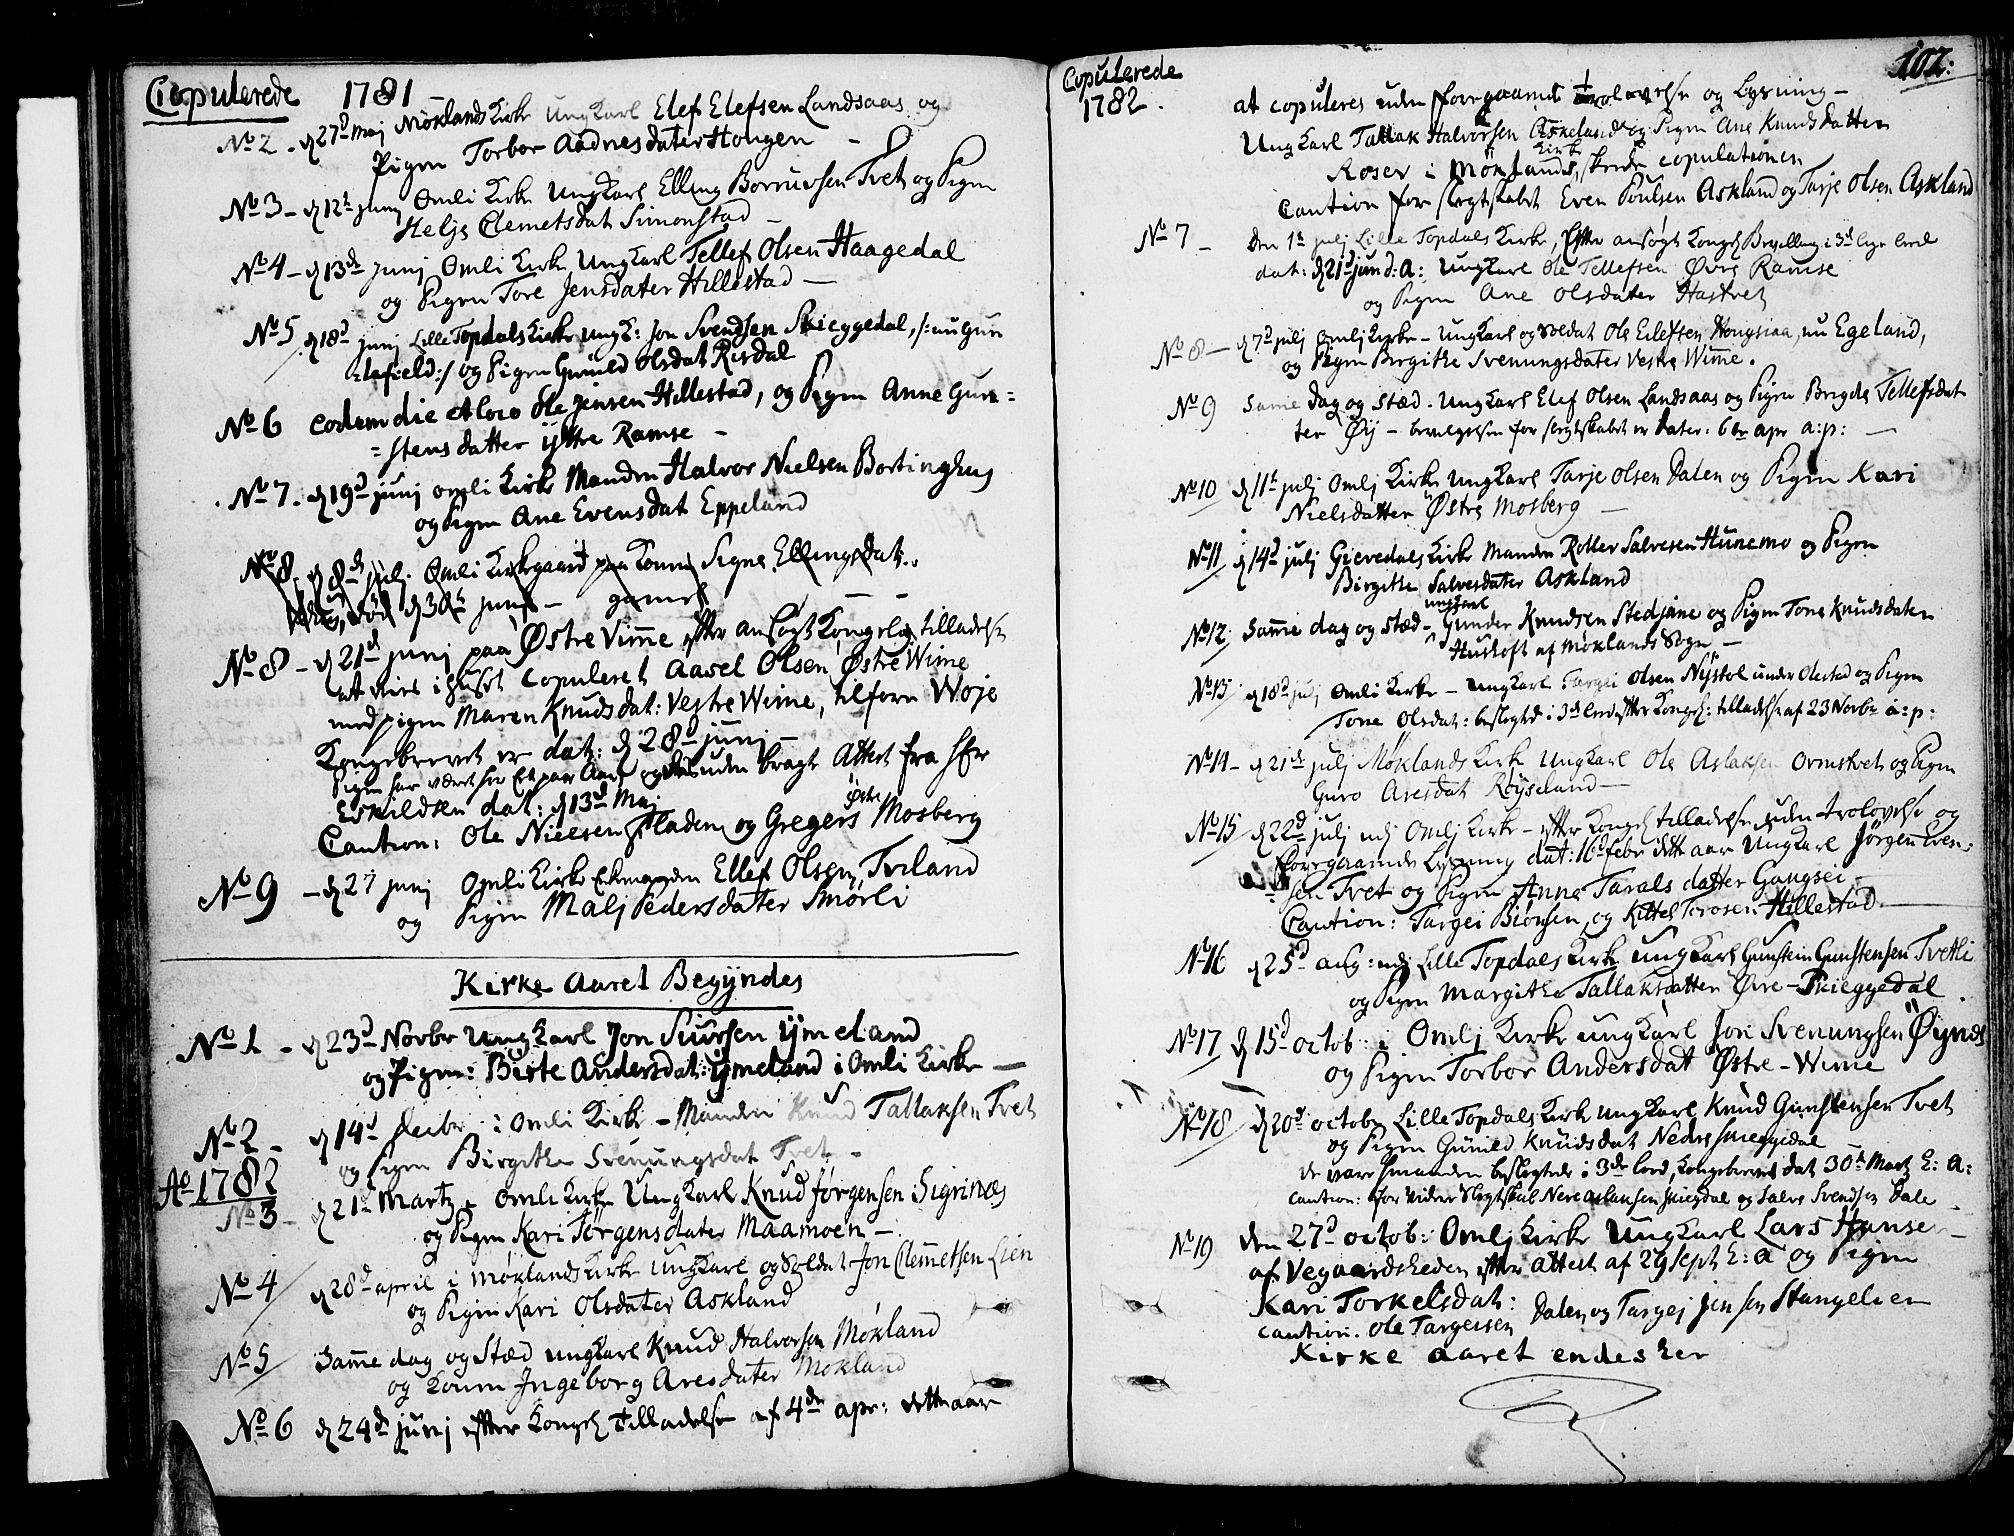 Copulerede 1781
No 2. d 27d Maj Möklands Kirke Ungkarl Elef Elefsen Landsaas og
Pigen Torbor Aadnesdater Hougen
No 3 - d 12t junj Omli Kirke Ungkarl Elling Borrursen Tvet og Pigen
Helje Clemetsdat Simonstad
No 4 - d 13de junj Omli Kirke Ungkarl Tellef Olsen Haagedal
og Pigen Tore Jensdater Hillestad
No 5 d 18d junj Lille Topdals Kirke Ungk: Jon Svendsen Skieggedal, /: nu Gun
=lefield :/ og Pigen Gunild Olsdat Risdal
No 6 eodem die et loco Ole Jensen Hillestad, og Pigen Anne Gun=
=stensdatter ÿttre Ramse
No 7. d 19d junj Omli Kirke Manden Halvor Nielsen Bortinghus
og Pigen Ane Evensdat Eppeland
No 8. d 8de julj Omli Kirkegaard paa Konen Signe Ellingsdat:
död d 30t junj - gamel
No 8 - d 21d junj paa Östre Vime efter ansögt Kongelig tilladelse
at vies i huset copuleret Aavel Olsen Östre Wime
med pigen Maren Knudsdat: Vestre Wime, tilforn Woje
Kongebrevet er dat: d 28d junj -
Pigen har været her et paar Aar og desuden bragt Attest fra Hr
Eskildsen dat: d 13d Maj
Caution: Ole Nielsen Fladen og Gregers Östre Mosberg
No 9 - d 27 junj Omli Kirke Ekmanden Ellef Olsen Tveland
og Pigen Malj Pedersdater Smörli
Kirke Aaret Begÿndes
No 1 - d 23d Novbr Ungkarl Jon Siursen ÿmeland
og Pigen: Birte Andersdat: ÿmeland i Omli Kirke
No 2 - d 14d decbr i Omli Kirke - Manden Knud Tallaksen Tvet
og Pigen Birgithe Svenungsdat Tvet
Ao 1782
No 3 - d 21d Martz Omli Kirke Ungkarl Knud Jörgensen Sigrinæs
og Pigen Kari Jörgensdater Maamoen -
No 4 d 28d april i Möklands Kirke Ungkarl og Soldat Jon Clemetsen Lien
og Pigen Kari Olsdater Askland
No 5 Samme dag og Stæd Ungkarl Knud Halvorsen Mökland
og Konen Jngeborg Aresdater Mökland
No 6 d 24de junj efter Kongel Tilladelse af 4de apr: dette aar
Copulerede
1782.
102:
at copuleres uden foregaaende Trolovelse og Lysning -
Ungkarl Tallak Halvorsen Askeland og Pigen Ane Knudsdatter
Roser i Möklands Kirke, skeede copulationen
Caution for slegtskabet Even Poulsen Askland og Tarje Olsen Askland
No 7 - Den 1t julj Lille Topdals Kirke, Efter ansögt Kongel Bevilling i 3d lige leed
dat: d 21d jun d: a: Ungkarl Ole Tellefsen Övre Ramse
og Pigen Ane Olsdater Hastvet
No 8 - d 7d julj Omlj Kirke - Ungkarl og Soldat Ole Eilefsen Hongsiaa, nu Egeland,
og Pigen Birgithe Svenungsdater Vestre Wime.
No 9 Samme Dag og Stæd. Ungkarl Elef Olsen Landsaas og Pigen Birgete Tellefsdat
ter Öÿ - bevilgelsen for slegtskabet er dater: 6te apr a: p:
No 10 d 11t julj Omlj Kirke Ungkarl Tarje Olsen Dalen og Pigen Kari
Nielsdatter Östre Mosberg -
No 11 d 14d julj Gievedals Kirke Manden Roller Salvesen Hunemo og Pigen
Birgithe Salvesdater Askland
No 12 Samme dag og stæd - ungkarl Gunder Knudsen Stedjane og Pigen Tone Knudsdater
Husloft af Möklands Sogn -
No 13 d 18d julj Omli Kirke - Ungkarl Targei Olsen Nÿstol under Olestad og Pigen
Tone Olsdat: beslegted i 3d leed efter Kongel: tilladelse af 23 Novbr a: p:
No 14 - d 21de julj Möklands Kirke Ungkarl Ole Aslaksen Ormtvet og Pigen
Guro Aresdat Röÿseland
No 15 d 22d julj udj Omlj Kirke - efter Kongel tilladelse uden trolovelse og
foregaaende Lysning dat: 16d febr dette aar Ungkarl Jörgen Even-
=sen Tvet og Pigen Anne Taralsdatter Gangsei
Caution: Targei Biönsen, og Kittel Torosen Hillestad.
No 16 d 25d aug: udj Lille Topdals Kirke Ungkarl Gunstein Gunstensen Tvetli
og Pigen Margithe Tallaksdatter Övre-Skieggedal.
No 17 d 15d octob: i Omlj Kirke Ungkarl Jon Svenungsen Öÿnes
og Pigen Torbor Andersdat Östre-Wime
No 18 d 20d octobr Lille Topdals Kirke Ungkarl Knud Gunstensen Tvet
og Pigen Gunild Knudsdat Nedre Skieggedal
de vare hinanden beslegtede i 3de leed, Kongebrevet dat 30t Martz h: a:
caution: for videre Slegtskab Nere Aslaksen Skiegdal og Salve Svendsen Dale
No 19 den 27d octob: Omlj Kirke Ungkarl Lars Hansen
af Vegaardsheden efter attest af 29 Sept h: a og Pigen
Kari Torkelsdat: Dalen
caution. Ole Targeisen Dalen og Targej Jensen Stangelien
Kirke aaret endes her